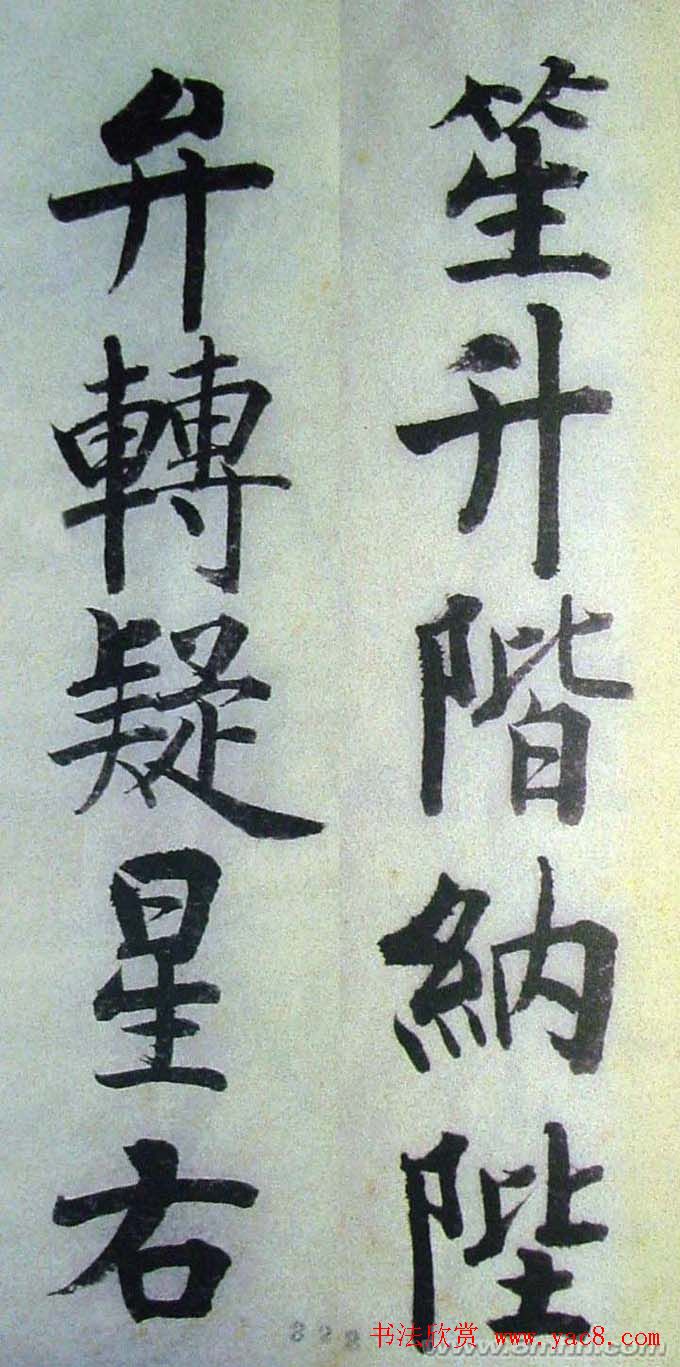 笙升階納陛
弁轉疑星右
书法欣赏 www.yac8.com